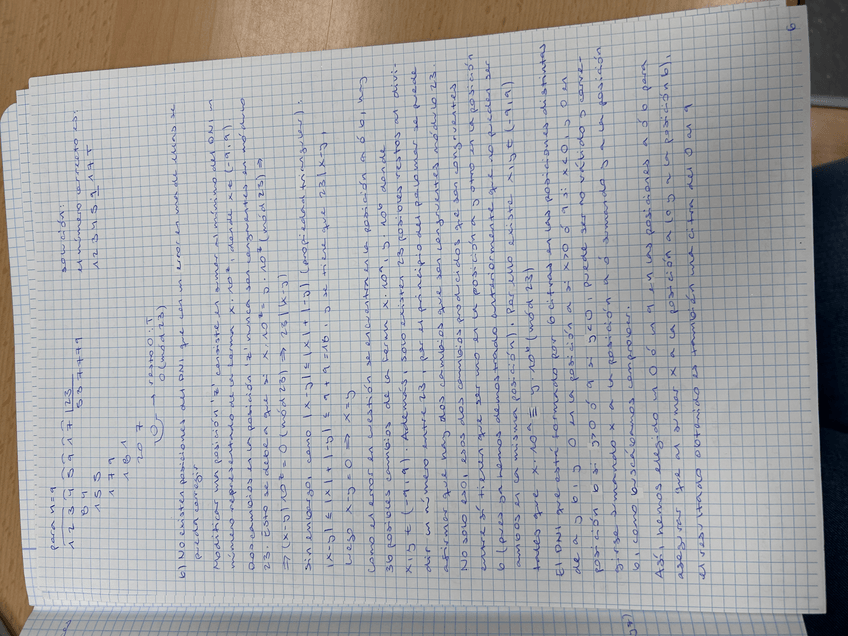 para n=9
12345917 |23
84 537779
155
179
181
207
0 → resto 0: T
0 (mód 23)
solución:
el número correcto es:
12345917T
b) No existen posiciones del DNI que con un error en una de ellas se
pueda corregir.
Modificar una posición 'z' consiste en sumar al número del DNI un
número representado de la forma x·10^z, donde x∈(-9,9)
Dos cambios en la posición 'z' nunca son congruentes en módulo
23. Esto se debe a que si x·10^z ≡ y·10^z (mód 23) ⇒
⇒ (x-y)10^z ≡ 0 (mód 23) ⇒ 23|(x-y)
Sin embargo, como |x-y| ≤ |x|+|-y| (propiedad triangular):
|x-y| ≤ |x|+|-y| ≤ 9+9=18, y se tiene que 23|x-y,
luego x-y=0 ⇒ x=y
Como el error en cuestión se encuentra en la posición a ó b, hay
36 posibles cambios de la forma x·10^a, y·10^b donde
x,y∈(-9,9). Además, solo existen 23 posibles restos al divi-
dir un número entre 23, por el principio del palomar se puede
afirmar que hay dos cambios que son congruentes módulo 23.
No solo eso, esos dos cambios producidos que son congruentes
entre sí tienen que ser uno en la posición a y otro en la posición
b (pues ya hemos demostrado anteriormente que no pueden ser
ambos en la misma posición). Por ello existe x,y∈(-9,9)
tales que x·10^a ≡ y·10^b (mód 23)
El DNI que está formado por 8 cifras en las posiciones distintas
de a y b, y 0 en la posición a si x>0 ó 9 si x<0, y 0 en
posición b si y>0 ó 9 si y<0, puede ser no válido y corre-
girse sumando x a la posición a ó sumando y a la posición
b, como buscábamos comprobar.
Así, hemos elegido un 0 ó un 9 en las posiciones a ó b para
asegurar que al sumar x a la posición a (o y a la posición b),
el resultado obtenido es también una cifra del 0 al 9
6